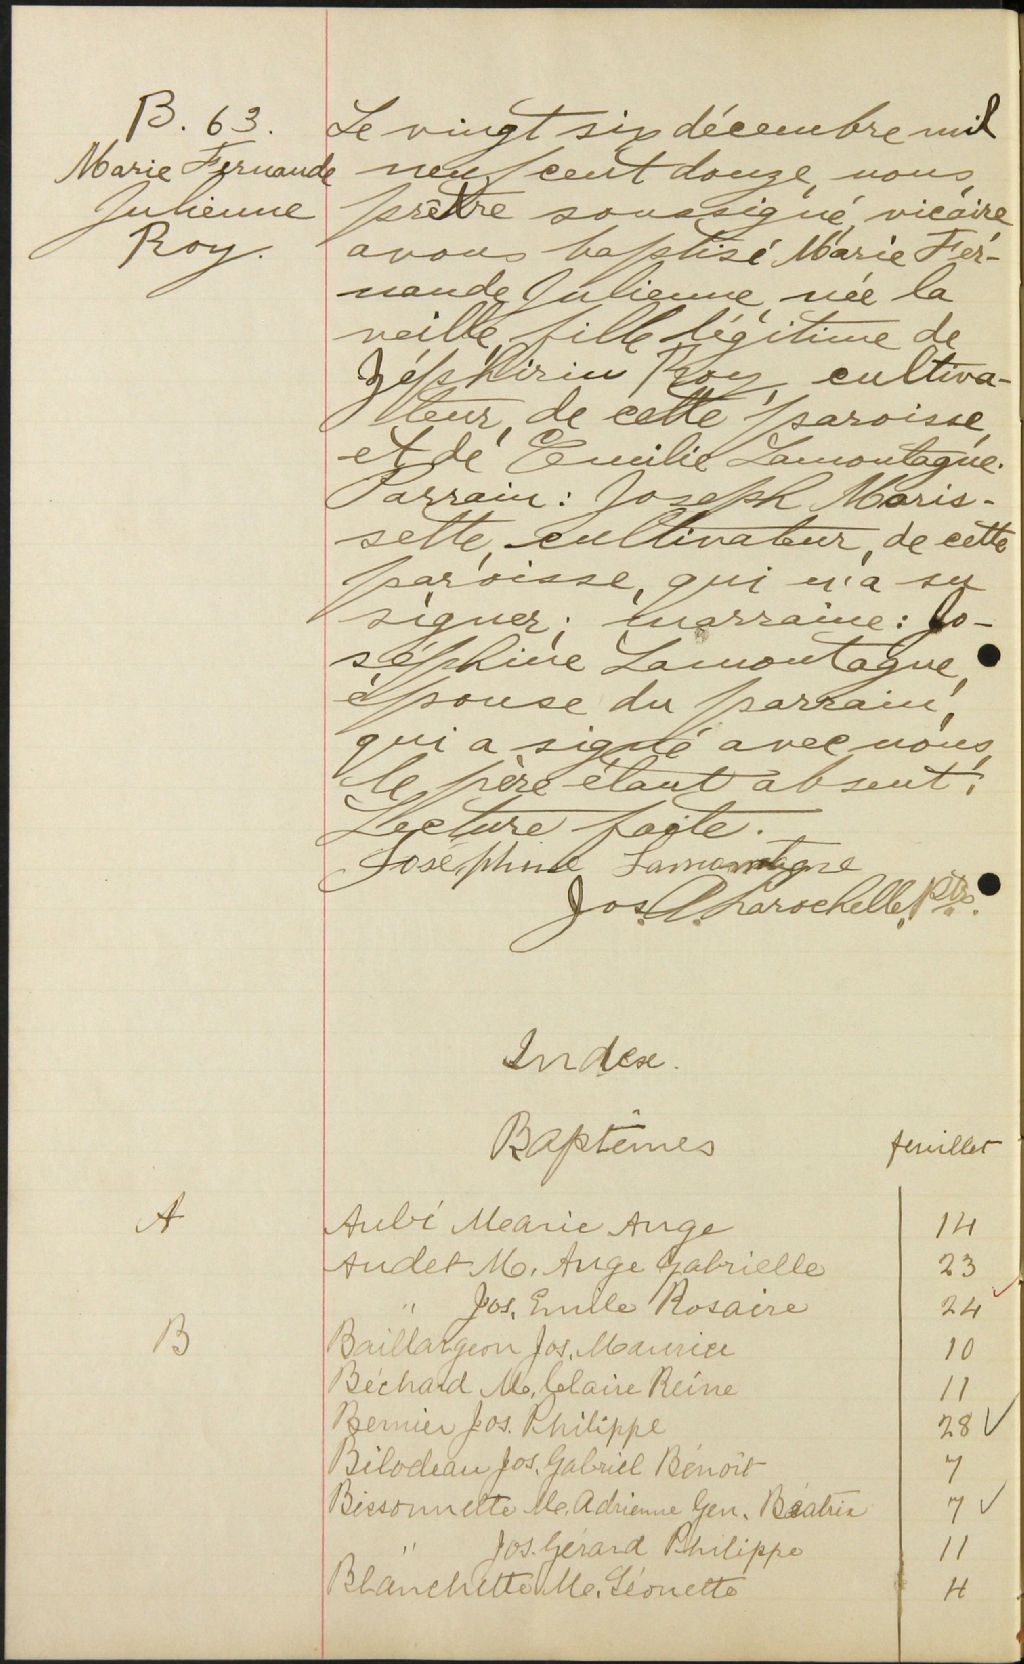 B. 63.
Marie Fernande
Julienne
Roy.
Le vingt six décembre mil
neuf cent douze, nous
prêtre soussigné, vicaire
avons baptisé Marie Fer-
nande Julienne, née la
veille, fille légitime de
Zéphirin Roy, cultiva-
teur, de cette paroisse,
et de Emilie Lamontagne.
Parrain: Joseph Moris-
sette, cultivateur, de cette
paroisse, qui n'a su
signer; marraine: Jo-
séphine Lamontagne,
épouse du parrain,
qui a signé avec nous,
le père étant absent.
Lecture faite.
Joséphine Lamontagne
Jos. A. Larochelle, Ptre.
Index.
Baptêmes feuillet
A Aubé Marie Ange 14
Audet M. Ange Gabrielle 23
" Jos. Emile Rosaire 24
B Baillargeon Jos. Maurice 10
Béchard M. Claire Reine 11
Bernier Jos. Philippe 28 ✓
Bilodeau Jos. Gabriel Bénoit 7
Bissonnette M. Adrienne Gen. Béatrix 7 ✓
" Jos. Gérard Philippe 11
Blanchette M. Léonette 4